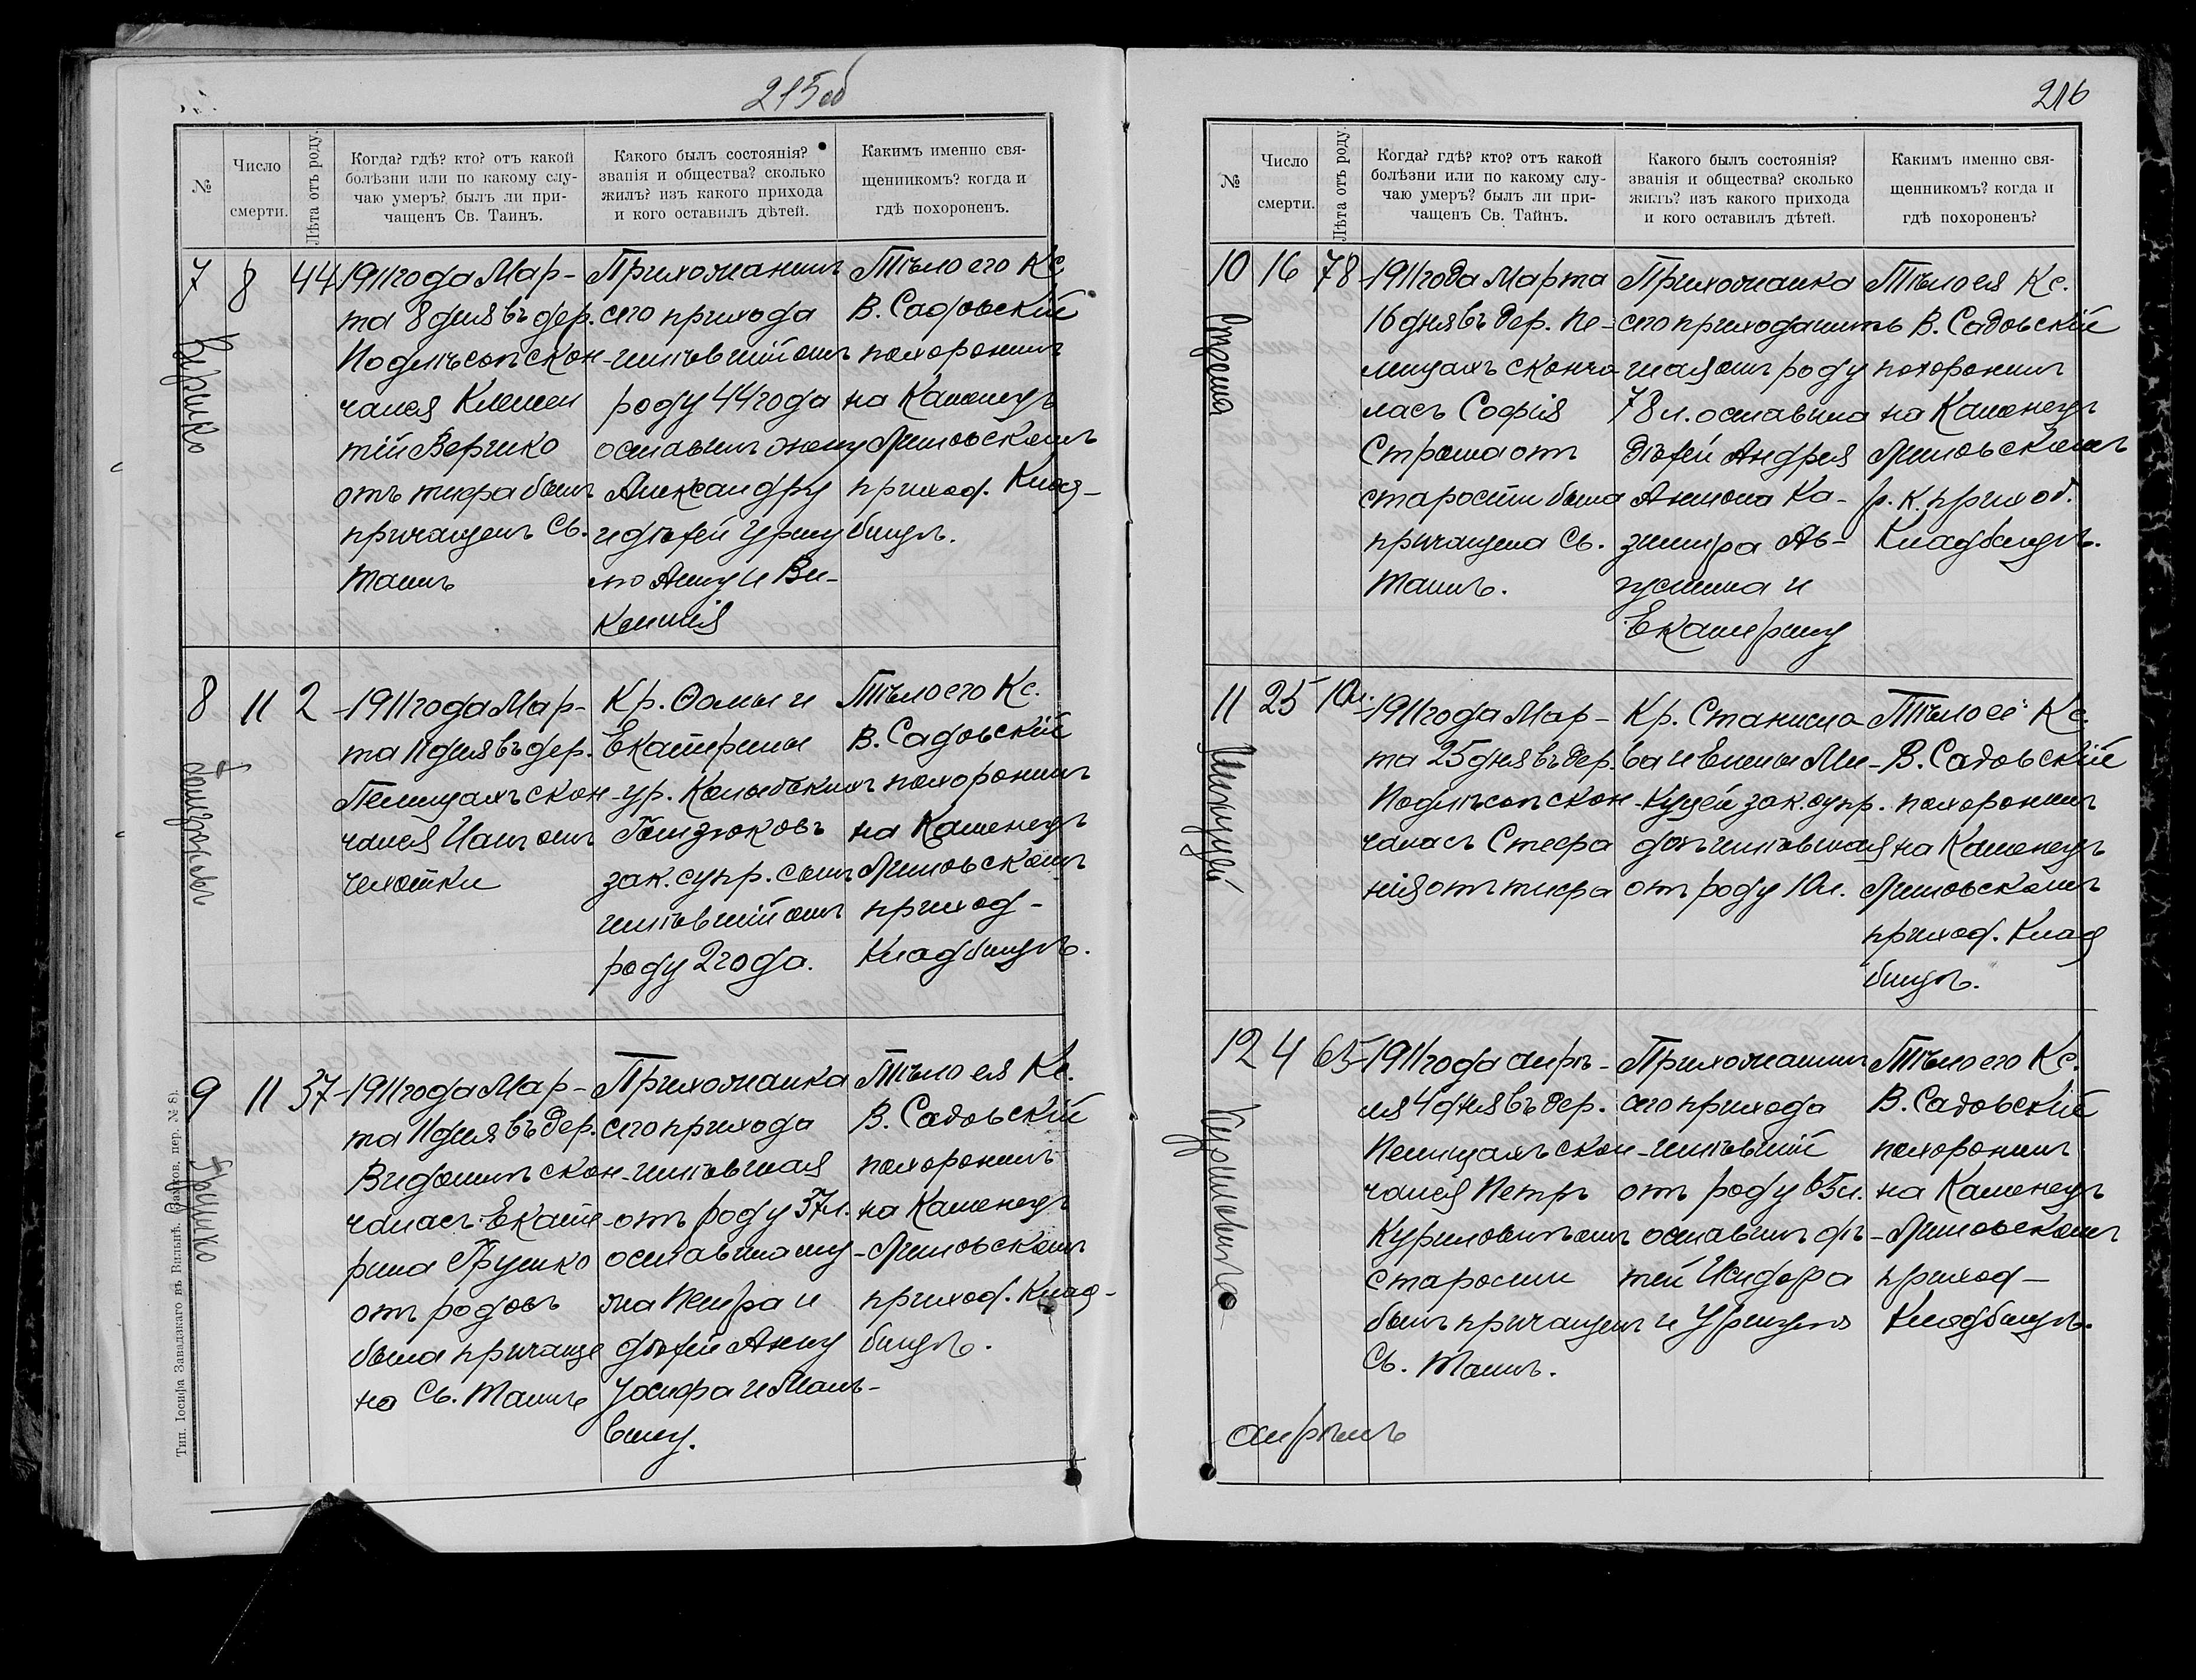 215об
№
Число
смерти.
Лѣта отъ роду.
Когда? гдѣ? кто? отъ какой
болѣзни или по какому слу-
чаю умеръ? былъ ли при-
чащенъ Св. Таинъ.
Какого былъ состоянія?
званія и общества? сколько
жилъ? изъ какого прихода
и кого оставилъ дѣтей.
Какимъ именно свя-
щенникомъ? когда и
гдѣ похороненъ.
7
8
44
Веришко
1911 года Мар-
та 8 дня въ дер.
Подлѣсьи скон-
чался Клемен
тій Веришко
отъ тифа былъ
причащенъ Св.
Таинъ
Прихожанинъ
сего прихода
жившій отъ
роду 44 года
оставилъ жену
Александру
и дѣтей Уршу
лю Анну и Ви-
кентія
Тѣло его Кс.
В. Садовскій
похоронилъ
на Каменецъ
Литовскомъ
приход. Клад-
бищѣ.
8
11
2
1911 года Мар-
та 11 дня въ дер.
Пелищахъ скон-
чался Ианъ отъ
чехотки
Кр. Ѳомы и
Екатерины
ур. Колыбскихъ
зак. супр. сынъ
жившій отъ
роду 2 года.
Тѣло его Кс.
В. Садовскій
похоронилъ
на Каменецъ
Литовскомъ
приход-
Кладбищѣ.
9
11
37
Грушко
1911 года Мар-
та 11 дня въ дер.
Видомлѣ скон-
чалась Екате-
рина Грушко
отъ родовъ
была причаще
на Св. Таинъ
Прихожанка
сего прихода
жившая
отъ роду 37 л.
оставила му-
жа Петра и
дѣтей Анну
Іосифа и Маль-
вину.
Тѣло ея Кс.
В. Садовскій
похоронилъ
на Каменецъ
Литовскомъ
приход. Клад-
бищѣ.
Тип. Іосифа Завадзкаго въ Вильнѣ. Замков. пер. № 8).
216
№
Число
смерти.
Лѣта отъ роду.
Когда? гдѣ? кто? отъ какой
болѣзни или по какому слу-
чаю умеръ? былъ ли при-
чащенъ Св. Тайнъ.
Какого былъ состоянія?
званія и общества? сколько
жилъ? изъ какого прихода
и кого оставилъ дѣтей.
Какимъ именно свя-
щенникомъ? когда и
гдѣ похороненъ?
10
16
78
Строма
1911 года Марта
16 дня въ дер. Пе-
лищахъ сконча-
лась Софія
Строма отъ
старости была
причащена Св.
Таинъ.
Прихожанка
сего прихода жив
шая отъ роду
78 л. оставила
дѣтей Андрея
Антона Ка-
зимира Ав-
густина и
Екатерину
Тѣло ея Кс.
В. Садовскій
похоронилъ
на Каменецъ
Литовскомъ
р. к. приход.
Кладбищѣ.
11
25
10 л.
Микуцей
1911 года Мар-
та 25 дня въ дер.
Подлѣсьи скон-
чалась Стефа
нія отъ тифа
Кр. Станисла-
ва и Елены Ми-
куцей зак. супр.
дочь жившая
отъ роду 10 л.
Тѣло ее Кс.
В. Садовскій
похоронилъ
на Каменецъ
Литовскомъ
приход. Клад
бищѣ.
12
4
65
Куриловичъ
1911 года апрѣ-
ля 4 дня въ дер.
Пелищахъ скон-
чался Петръ
Куриловичъ отъ
старости
былъ причащенъ
Св. Таинъ.
Прихожанинъ
сего прихода
жившій
отъ роду 65 л.
оставилъ дѣ-
тей Исидора
и Уршулю
Тѣло его Кс.
В. Садовскій
похоронилъ
на Каменецъ
Литовскомъ
приход-
Кладбищѣ.
апрѣль